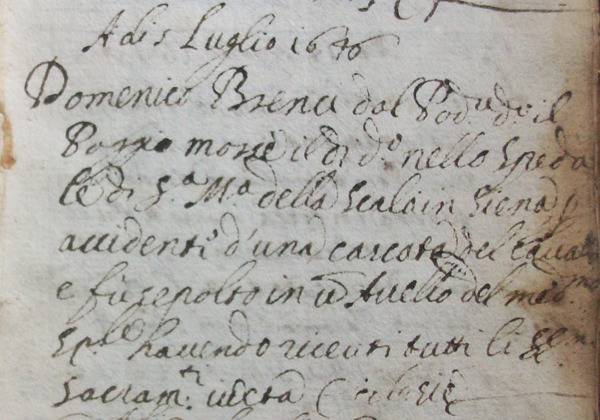 Adi 5 Luglio 1646
Domenico Brenci dal Pod.e d.o il
Poggio morse il di d.o nello Speda
le di S.a M.a della Scala in Siena p
accidenti d'una cascata del cavallo
e fu sepolto in un Avello del med.mo
Sp.le havendo ricevuti tutti li SS.mi
Sacram.ti iuxta